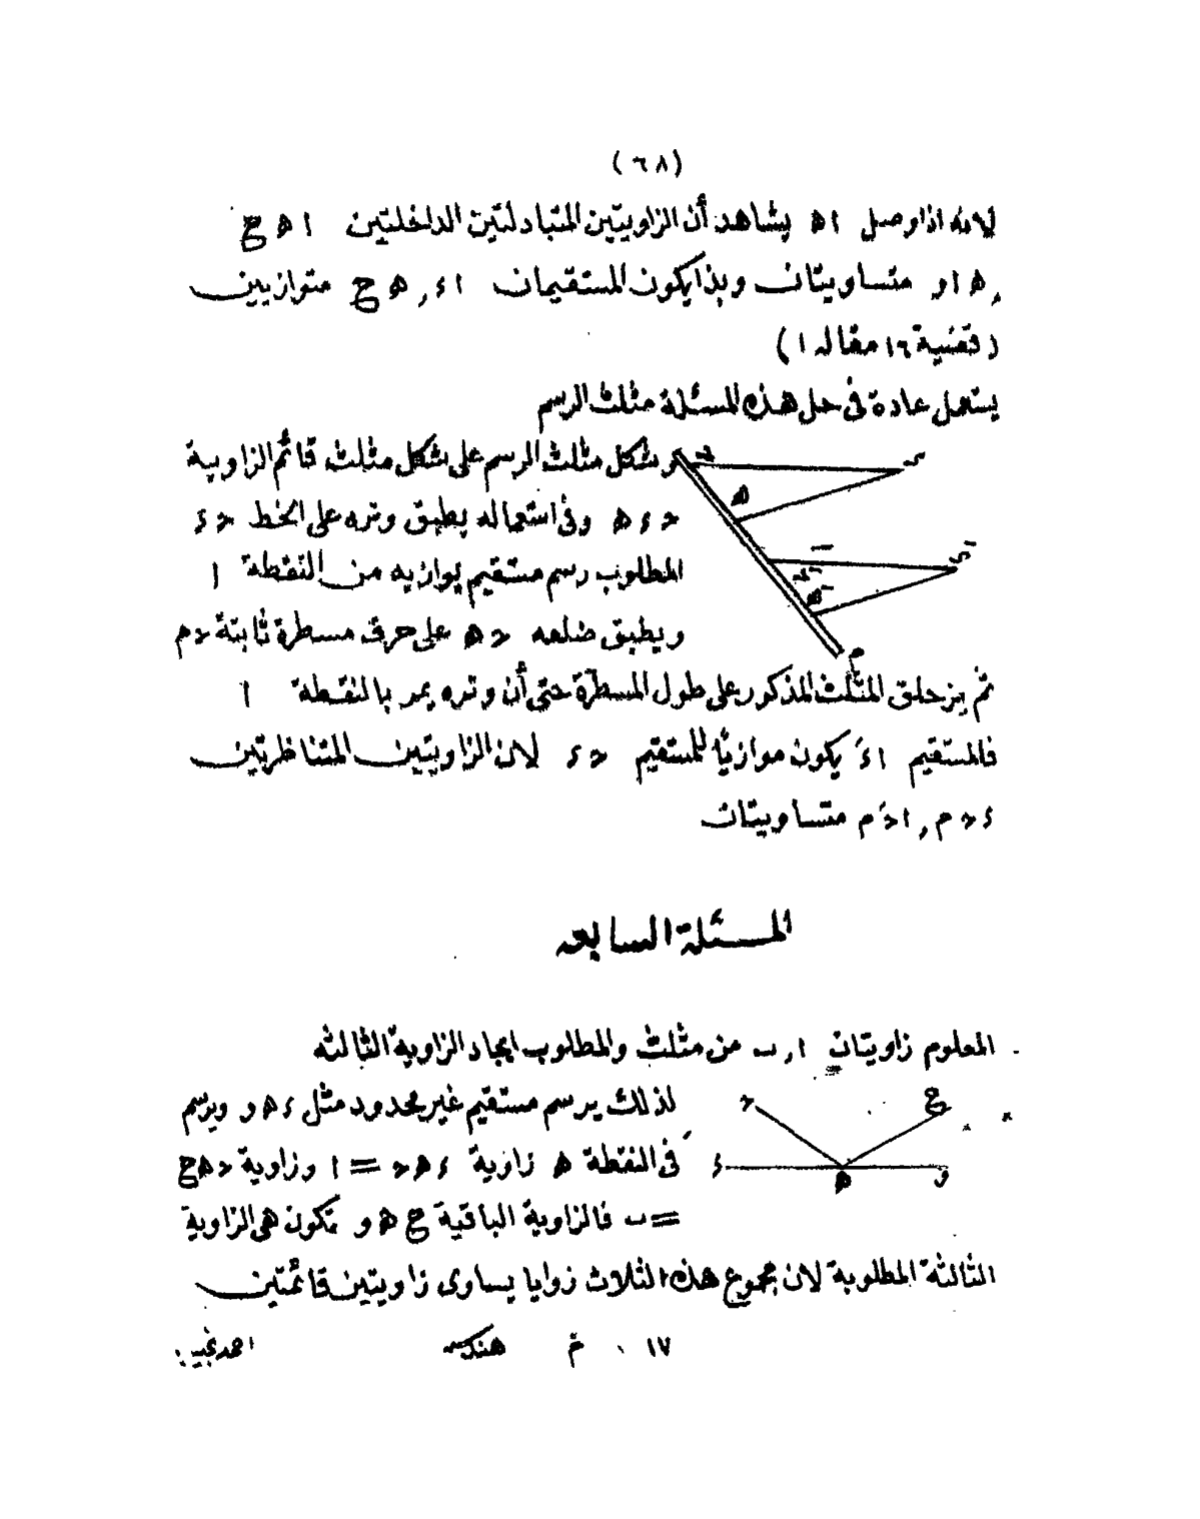 (٦٨)
لانه اذا وصل ا ه يشاهد أن الزاويتين المتبادلتين الداخلتين ا ه ح
, ه ا و متساويتان وبذا يكون المستقيمان ا ء , ه ح متوازيين
(قضية ١٦ مقاله ١)
يستعمل عادة فى حل هذه المسئلة مثلث الرسم
وشكل مثلث الرسم على شكل مثلث قائم الزاوية
حـ ء ه وفى استعماله يطبق وتره على الخط حـ ء
المطلوب رسم مستقيم يوازيه من النقطة ا
ويطبق ضلعه حـ ه على حرف مسطرة ثابتة حـ م
ثم يزحلق المثلث المذكور على طول المسطرة حتى أن وتره يمر بالنقطة ا
فالمستقيم ا ءَ يكون موازيًا للمستقيم حـ ء لان الزاويتين المتناظرتين
ء حـ م , ا حـَ م متساويتان
المسئلة السابعه
المعلوم زاويتان ا , ب من مثلث والمطلوب ايجاد الزاوية الثالثه
لذلك يرسم مستقيم غير محدود مثل ء ه و ويرسم
فى النقطة ه زاوية ء ه حـ = ا وزاوية حـ ه ح
= ب فالزاوية الباقية ح ه و تكون هى الزاوية
الثالثة المطلوبة لان مجموع هذه الثلاث زوايا يساوى زاويتين قائمتين
١٧ م هندسه احمد نجيب